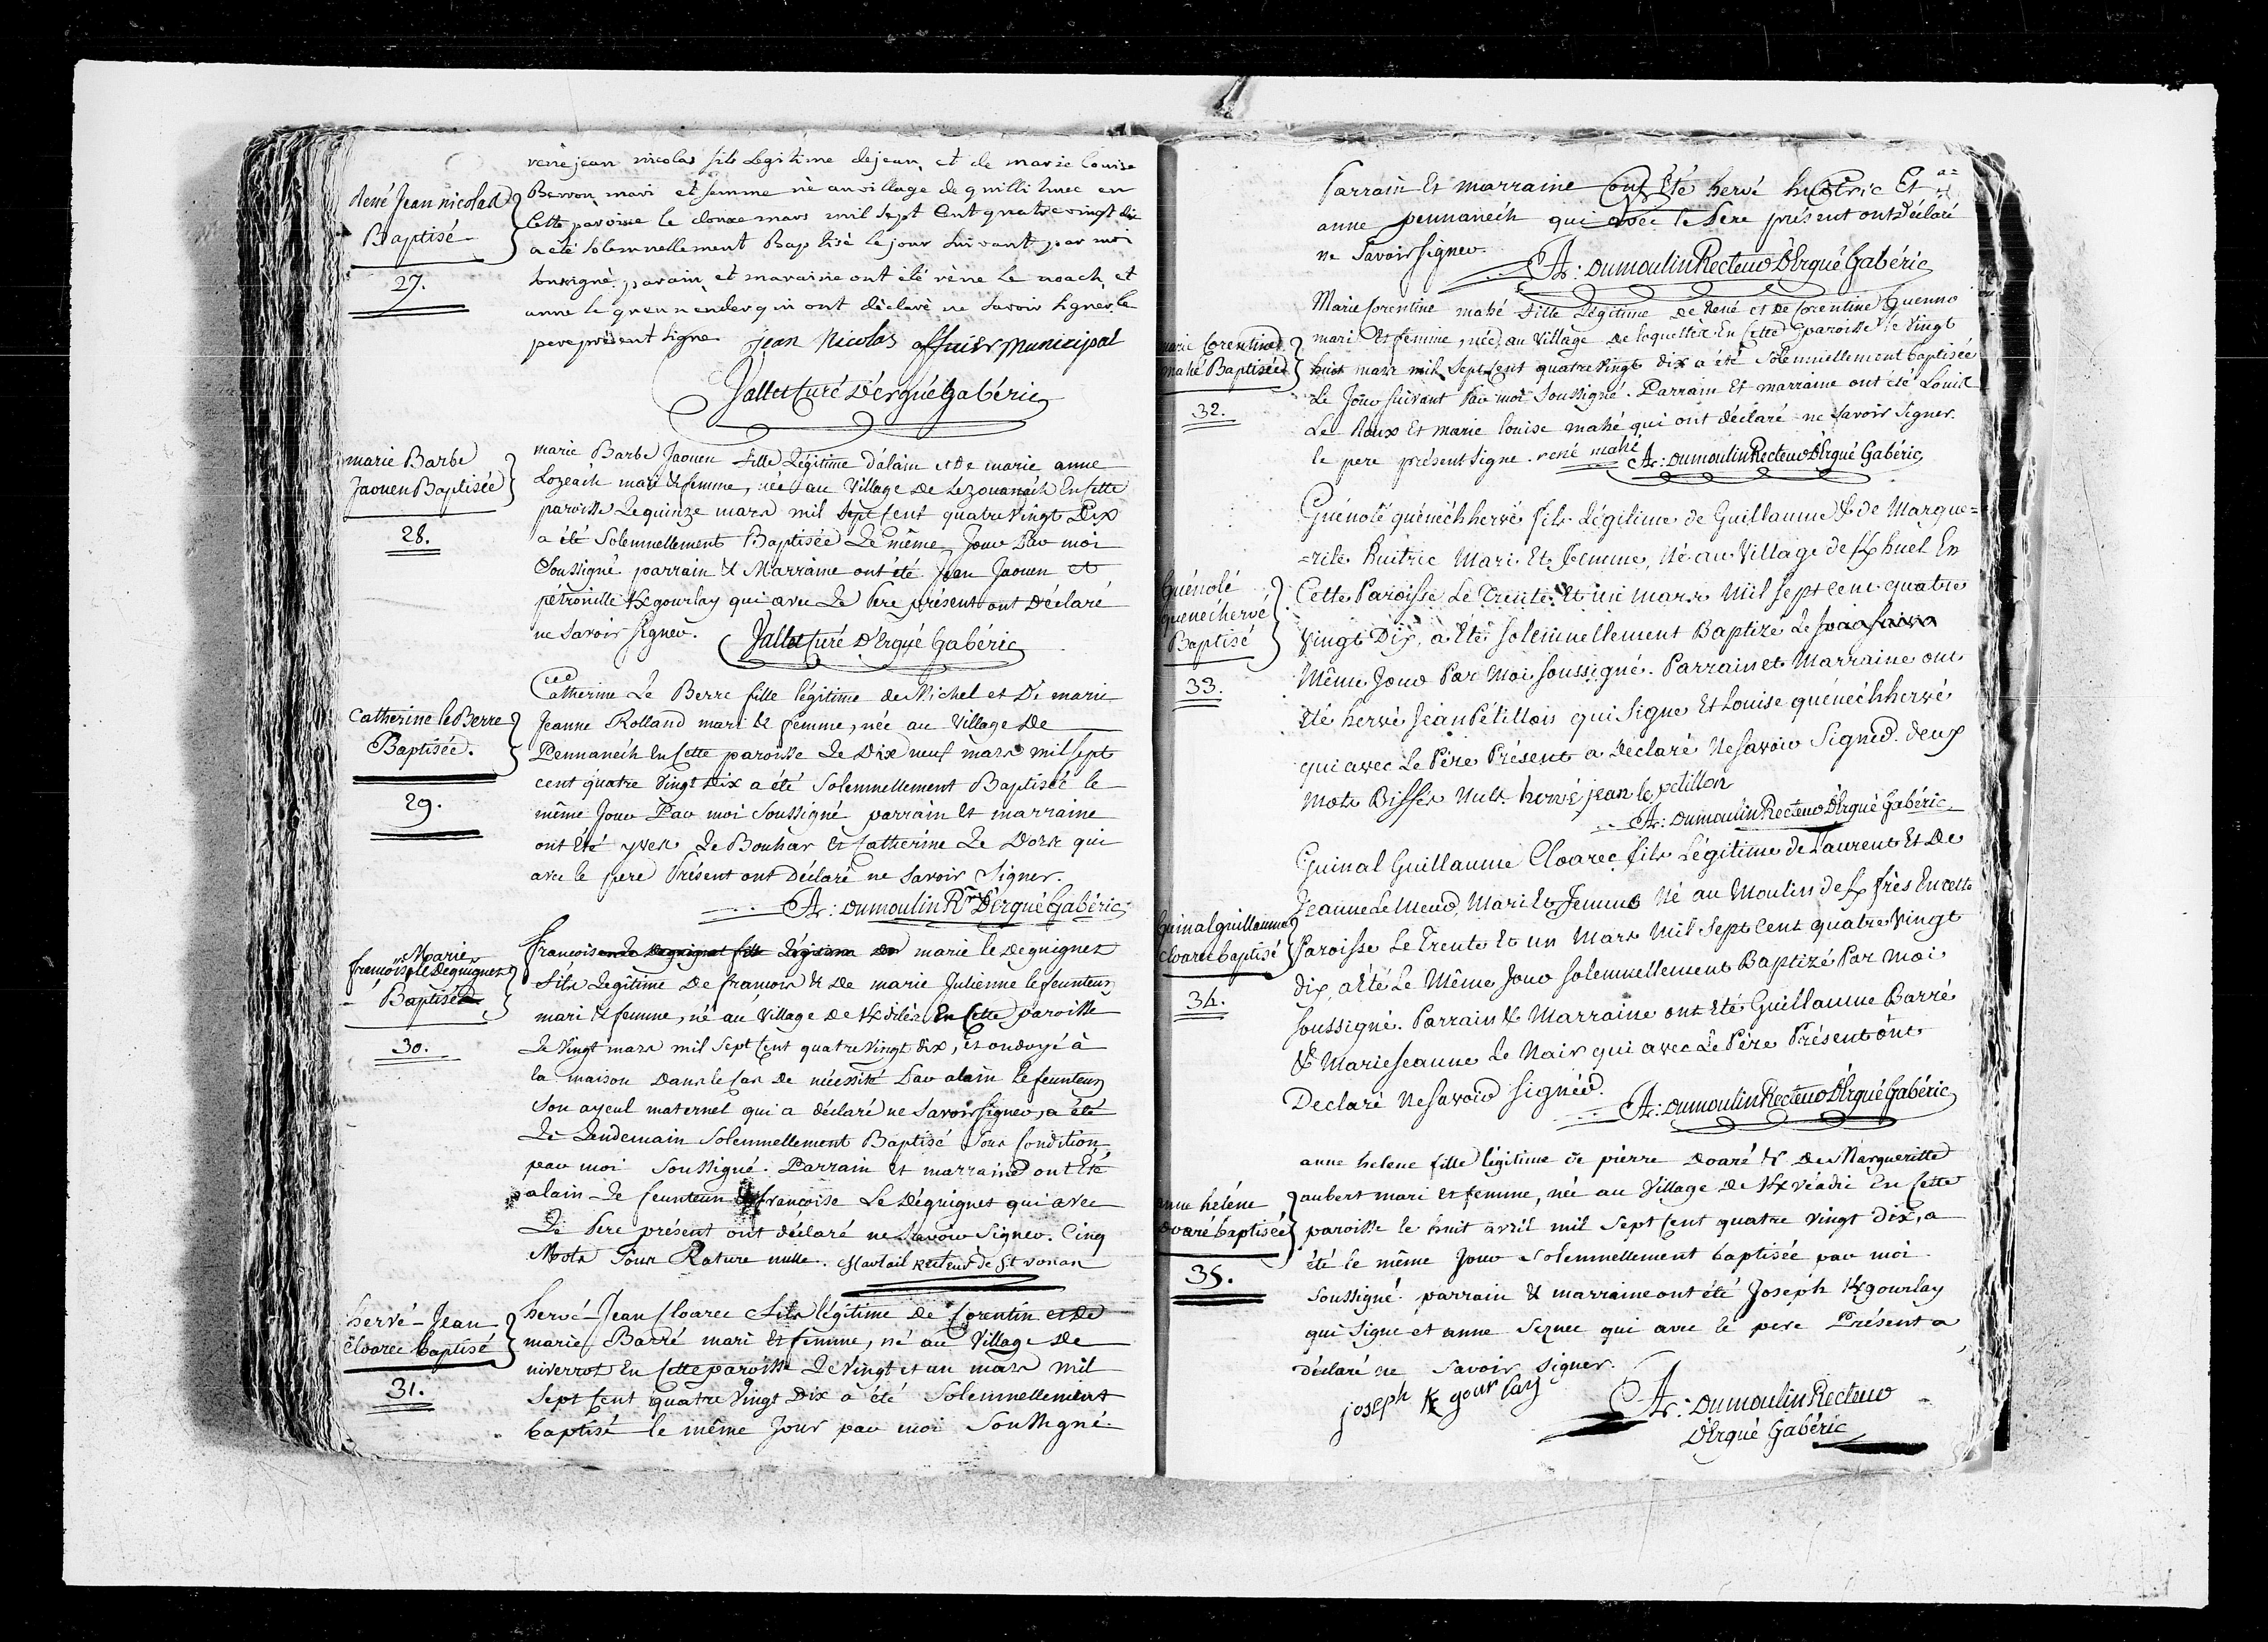 rené jean nicolas fils Legitime de jean, et de marie louise
René Jean nicolas
Baptisé
27.
Berron mari et femme né au village de quilli huec en
Cette paroisse le douze mars mil sept Cent quatre vingt dix
a été Solemnellement Baptisé le jour suivant par moi
soussigné, parain, et maraine ont été réne le noach, et
anne le gren nender qui ont déclaré ne savoir signer le
pere présent signe jean Nicolas officier municipal
Jallet Curé d'Ergué Gabéric
marie Barbe
Jaouen Baptisée
28.
marie Barbe Jaouen fille Légitime d'alain et De marie anne
Lozeach mari & femme, née au Village De Lezouanach En Cette
paroisse Le quinze mars mil Sept Cent quatre Vingt Dix
a été Solemnellement Baptisée Le même Jour Par moi
Soussigné parrain & Marraine ont été Jean Jaouen et
pétronille Kgourlay qui avec Le Pere présent ont Déclaré
ne Savoir Signer. Jallet Curé D'Ergué Gabéric
Catherine le Berre
Baptisée.
29.
Catherine Le Berre fille légitime de Michel et De marie
Jeanne Rolland mari & femme, née au Village De
Pennanech En Cette paroisse Le Dix neuf mars mil Sept
cent quatre Vingt Dix a été Solemnellement Baptisée le
même Jour Par moi Soussigné parrain et marraine
ont Eté yves Le Bouhar et Catherine Le Dors qui
avec le pere Présent ont Déclaré ne Savoir Signer.
A: Dumoulin Rr D'Ergué Gabéric
Marie
françois le Déguignet
Baptisé
30.
françois Le Deguignet fils Légitime de marie le Deguignet
fils Legitime De françois & De marie Julienne le feunteun
mari & femme, né au Village de Kdilés En Cette paroisse
Le Vingt mars mil Sept Cent quatre Vingt Dix, et ondoyé à
la maison Dans le Cas De nécessité Par alain le feunteun
Son ayeul maternel qui a déclaré ne Savoir Signer, a été
Le Lendemain Solemnellement Baptisé Sous Condition
par moi Soussigné. Parrain et marraine ont Eté
alain Le feunteun & françoise Le Déguignet qui avec
Le Pere présent ont déclaré ne Savoir Signer. Cinq
Mots Sous Rature nulle. Martail recteur de St vonan
hervé-Jean
Cloarec baptisé
31.
hervé-Jean Cloarec fils légitime De Corentin et De
marie Barré mari et femme, né au Village De
niverrot En Cette paroisse Le Vingt et un mars mil
Sept Cent quatre Vingt Dix a été Solemnellement
baptisé le même Jour par moi Soussigné.
Parrain Et marraine ont Eté hervé huitric Et
anne pennanech qui avec le Pere présent ont Déclaré
ne Savoir Signer.
A: Dumoulin Recteur D'Ergué Gabéric
marie Corentine
mahé Baptisée
32.
Marie Corentine mahé fille Légitime De René et De Corentine Guenno
mari Et femme, née au Village De loquellic En Cette paroisse le Vingt
huit mars mil Sept Cent quatre Vingt dix a été Solemnellement baptisée
Le Jour Suivant Par moi Soussigné. Parrain Et marraine ont été Louis
Le Roux Et marie louise mahé qui ont déclaré ne Savoir Signer.
le pere présent Signe. rené mahé A: Dumoulin Recteur D'Ergué Gabéric
Guénolé
quenechervé
Baptisé
33.
Guénolé quénéchhervé fils Légitime de Guillaume & de Margue=
=rite Huitric Mari Et Femme, Né au Village de Khuel En
Cette Paroisse Le Trente Et un Mars Mil sept cent quatre
Vingt Dix, a été solemnellement Baptizé Le
Même Jour Par Moi soussigné. Parrain et Marraine ont
été hervé Jean Pétillon qui Signe Et Louise quénéchhervé
qui avec Le Père Présent a Déclaré Ne savoir Signer. deux
Mots Biffés Nuls. hervé jean le petillon
A: Dumoulin Recteur D'Ergué Gabéric
Guinal guillaume
cloarec baptisé
34.
Guinal Guillaume Cloarec fils Légitime de Laurent Et De
Jeanne Le Meur, Mari Et Femme Né au Moulin de Kfrès En cette
Paroisse Le Trente Et un Mars Mil Sept Cent quatre Vingt
dix, a été Le Même Jour solemnellement Baptizé Par Moi
soussigné. Parrain & Marraine ont été Guillaume Barré
& Marie Jeanne Le Nair qui avec Le Père Présent ont
Declaré Ne savoir signer.
A: Dumoulin Recteur D'Ergué Gabéric
anne hélène
Doaré baptisée
35.
anne helene fille légitime de pierre Doaré & De Margueritte
aubert mari et femme, née au Village de Kvéadic En Cette
paroisse le huit avril mil Sept Cent quatre Vingt Dix, a
été le même Jour Solemnellement baptisée par moi
Soussigné. parrain & marraine ont été Joseph Kgourlay
qui Signe et anne Seznec qui avec le pere Présent a
déclaré ne Savoir Signer.
joseph K gourlay
A: Dumoulin Recteur
D'Ergué Gabéric